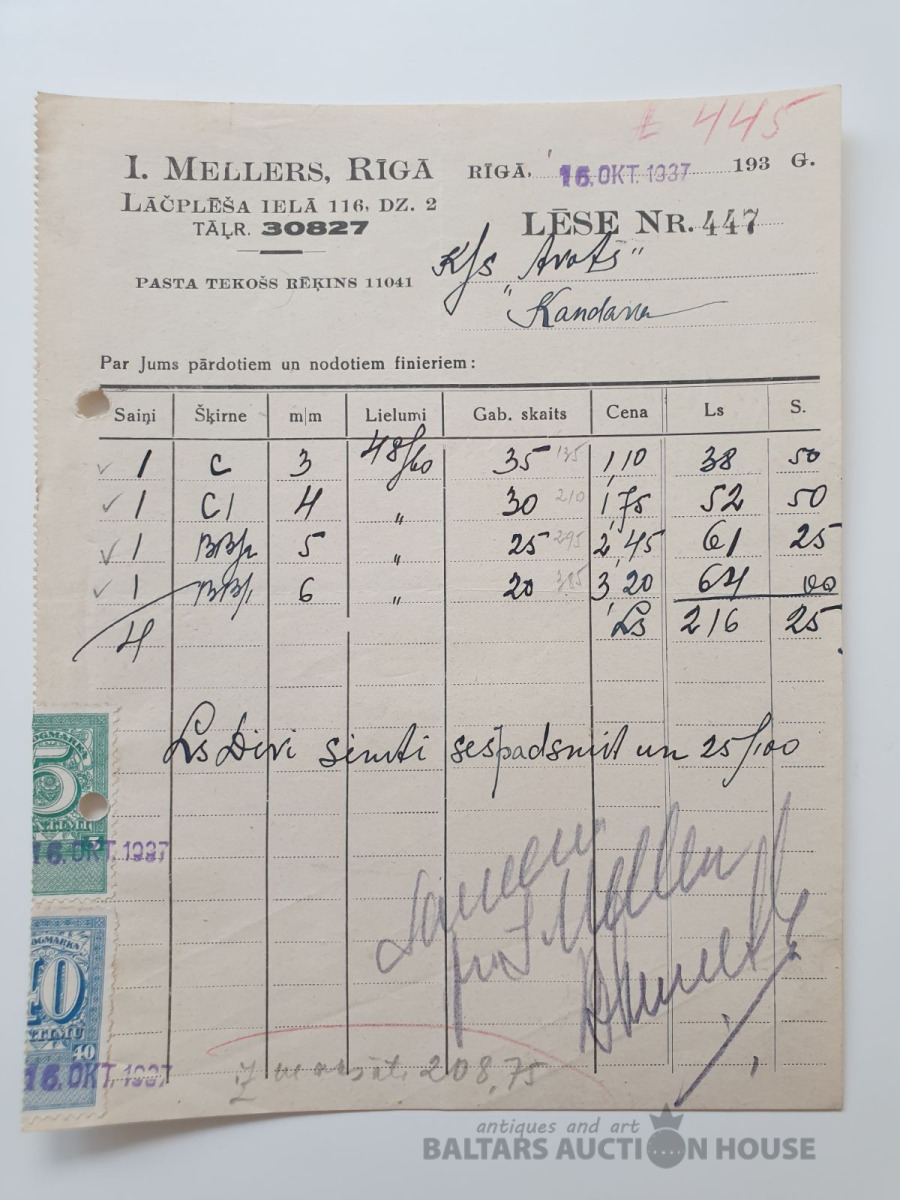 Ł 445
I. MELLERS, RĪGĀ
LĀČPLĒŠA IELĀ 116, DZ. 2
TĀĻR. 30827
PASTA TEKOŠS RĒĶINS 11041
RĪGĀ, 16. OKT. 1937 193 G.
LĒSE NR. 447
K/s Avots"
"Kandava
Par Jums pārdotiem un nodotiem finieriem:
Saiņi Šķirne m|m Lielumi Gab. skaits Cena Ls S.
1 C 3 48/60 35 135 1,10 38 50
1 C1 4 " 30 210 1,75 52 50
1 5 " 25 295 2,45 61 25
1 6 " 20 385 3,20 64 00
4 Ls 216 25
Ls Divi simti sešpadsmit un 25/100
5
16. OKT. 1937
40
40
16. OKT. 1937
208,75
antiques and art
BALTARS AUCTION HOUSE